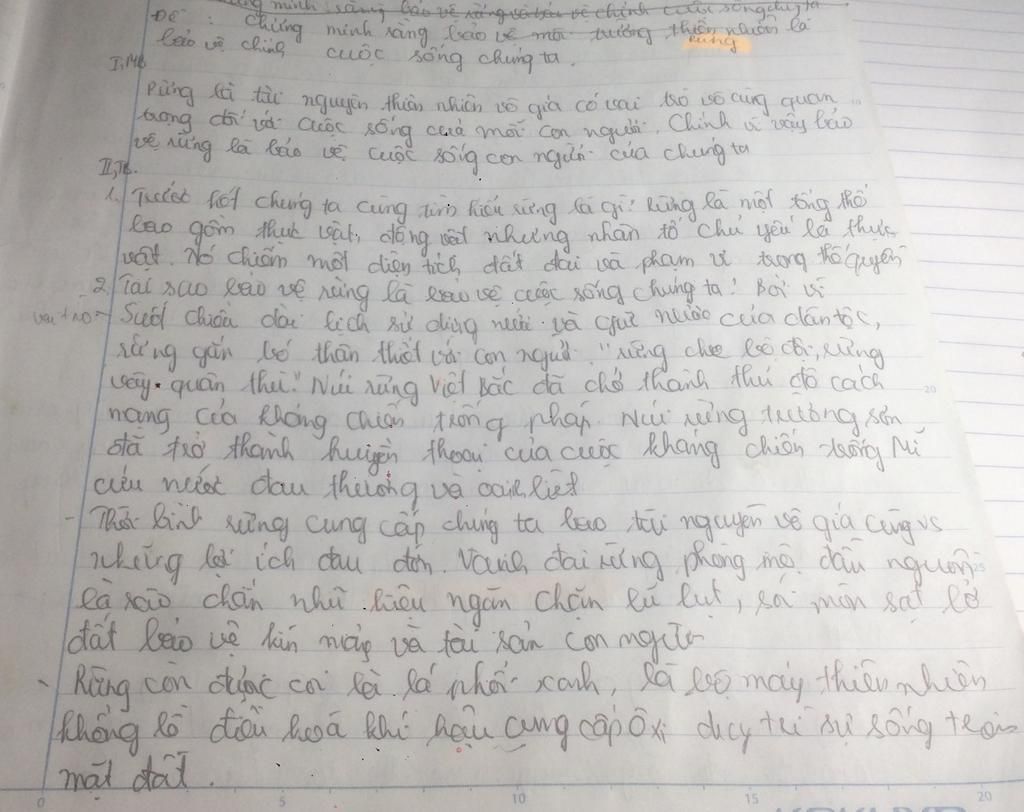 minh rằng bảo vệ rừng và bảo vệ chính cuộc sống chúng ta
Đề: Chứng minh rằng bảo vệ môi trường thiên nhiên là
rừng
bảo vệ chính cuộc sống chúng ta.
I, MB
Rừng là tài nguyên thiên nhiên vô giá có vai trò vô cùng quan
trọng đối với cuộc sống của mỗi con người. Chính vì vậy bảo
vệ rừng là bảo vệ cuộc sống con người của chúng ta
II, TB.
1. Trước hết chúng ta cùng tìm hiểu rừng là gì? Rừng là một tổng thể
bao gồm thực vật, động vật nhưng nhân tố chủ yếu là thực
vật. Nó chiếm một diện tích đất đai và phạm vi trong thổ quyển
2. Tại sao bảo vệ rừng là bảo vệ cuộc sống chúng ta? Bởi vì
vai trò - Suốt chiều dài lịch sử dựng nước và giữ nước của dân tộc,
rừng gắn bó thân thiết với con người "rừng che bộ đội, rừng
vây quân thù." Núi rừng Việt Bắc đã chở thành thủ đô cách
mạng của kháng chiến trống pháp. Núi rừng trường sơn
đã trở thành huyền thoại của cuộc kháng chiến trống Mĩ
cứu nước đau thương và oanh liệt
- Thời bình rừng cung cấp chúng ta bao tài nguyên vô giá cùng vs
những lợi ích đau đớn. Vành đai rừng phòng hộ đầu nguồn
là rào chắn hữu hiệu ngăn chặn lũ lụt, sói mòn sạt lở
đất bảo vệ tính mạng và tài sản con người
- Rừng còn được coi là lá phổi xanh, là bộ máy thiên nhiên
khổng lồ điều hoà khí hậu cung cấp Ôxi duy trì sự sống trên
mặt đất.
20
25
0 5 10 15 20